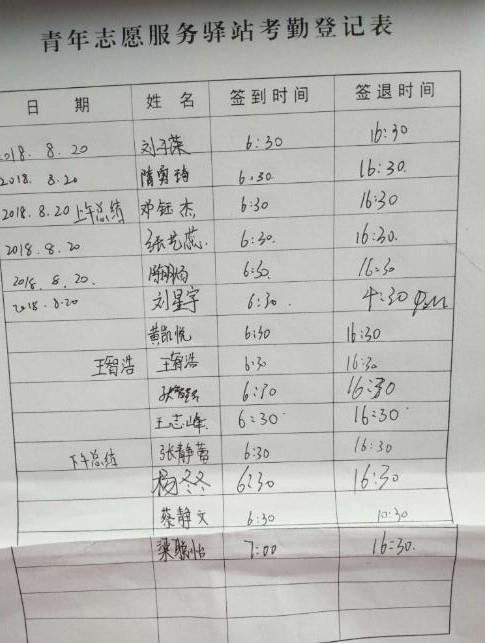 青年志愿服务驿站考勤登记表
日 期 姓 名 签到时间 签退时间
2018. 8. 20 刘子荣 6:30 16:30
2018. 8.20 隋 6:30 16:30.
2018.8.20 上午总结 邓钰杰 6:30 16:30
2018.8.20 张艺蕊. 6:30. 16:30.
2018. 8. 20. 陈 6:30. 16:30
2018. 8.20 刘星宇 6:30. 4:30 pm
黄凯悦 6:30 16:30
王智浩 王智浩 6:30 16:30
6:30 16:30
王志峰 6:30 16:30
下午总结 张静蕾 6:30 16:30
杨冬冬 6:30 16:30
蔡静文 6:30 10:30
梁聪怡 7:00 16:30.